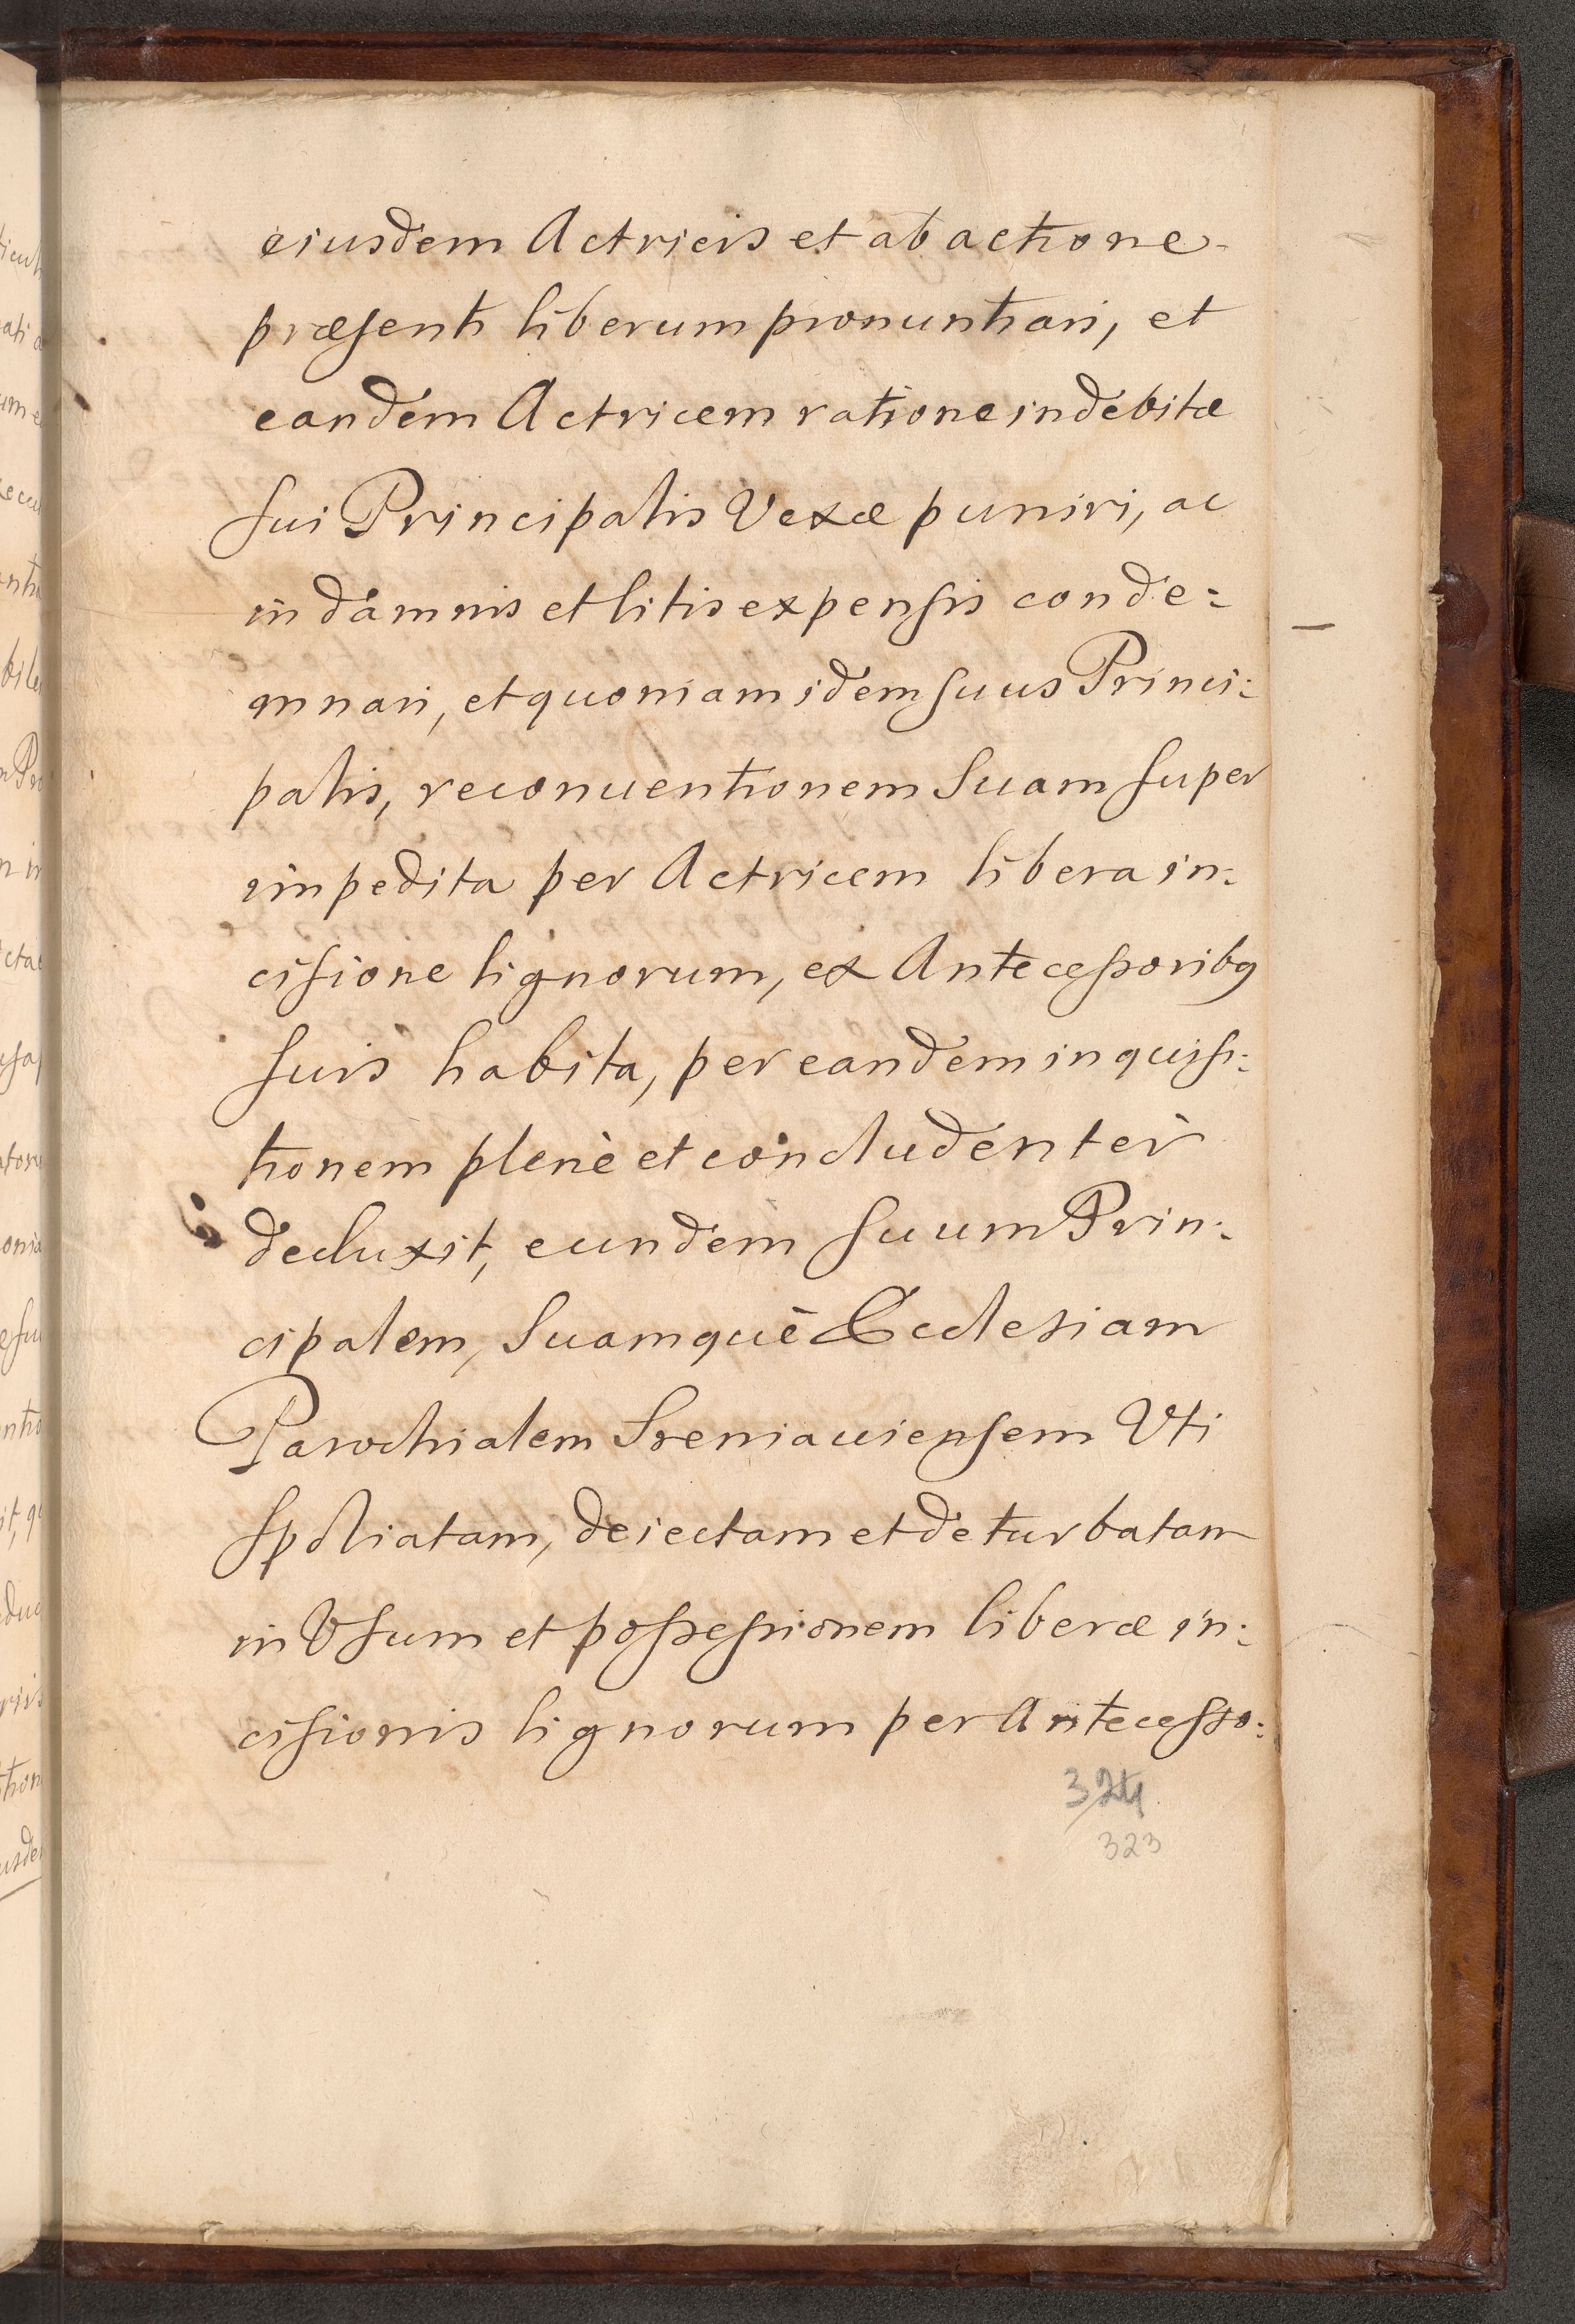 eiusdem Actricis et ab actione
præsenti liberum pronuntiari, et
eandem Actricem ratione indebitæ
sui Principalis Vexæ puniri, ac
in damnis et litis expensis conde:
mnari, et quoniam idem suus Princi:
palis, reconuentionem suam super
impedita per Actricem libera in:
cisione lignorum, ex Antecessoribq
suis habita, per eandem inquisi:
tionem plenè et concludenter
deduxit, eundem suum Prin:
cipalem, suamquè Ecclesiam
Parochialem Sreniauiensem Vti
spoliatam, deiectam et deturbatam
in Vsum et possessionem liberæ in:
cisionis lignorum per Antecesso:
324
323